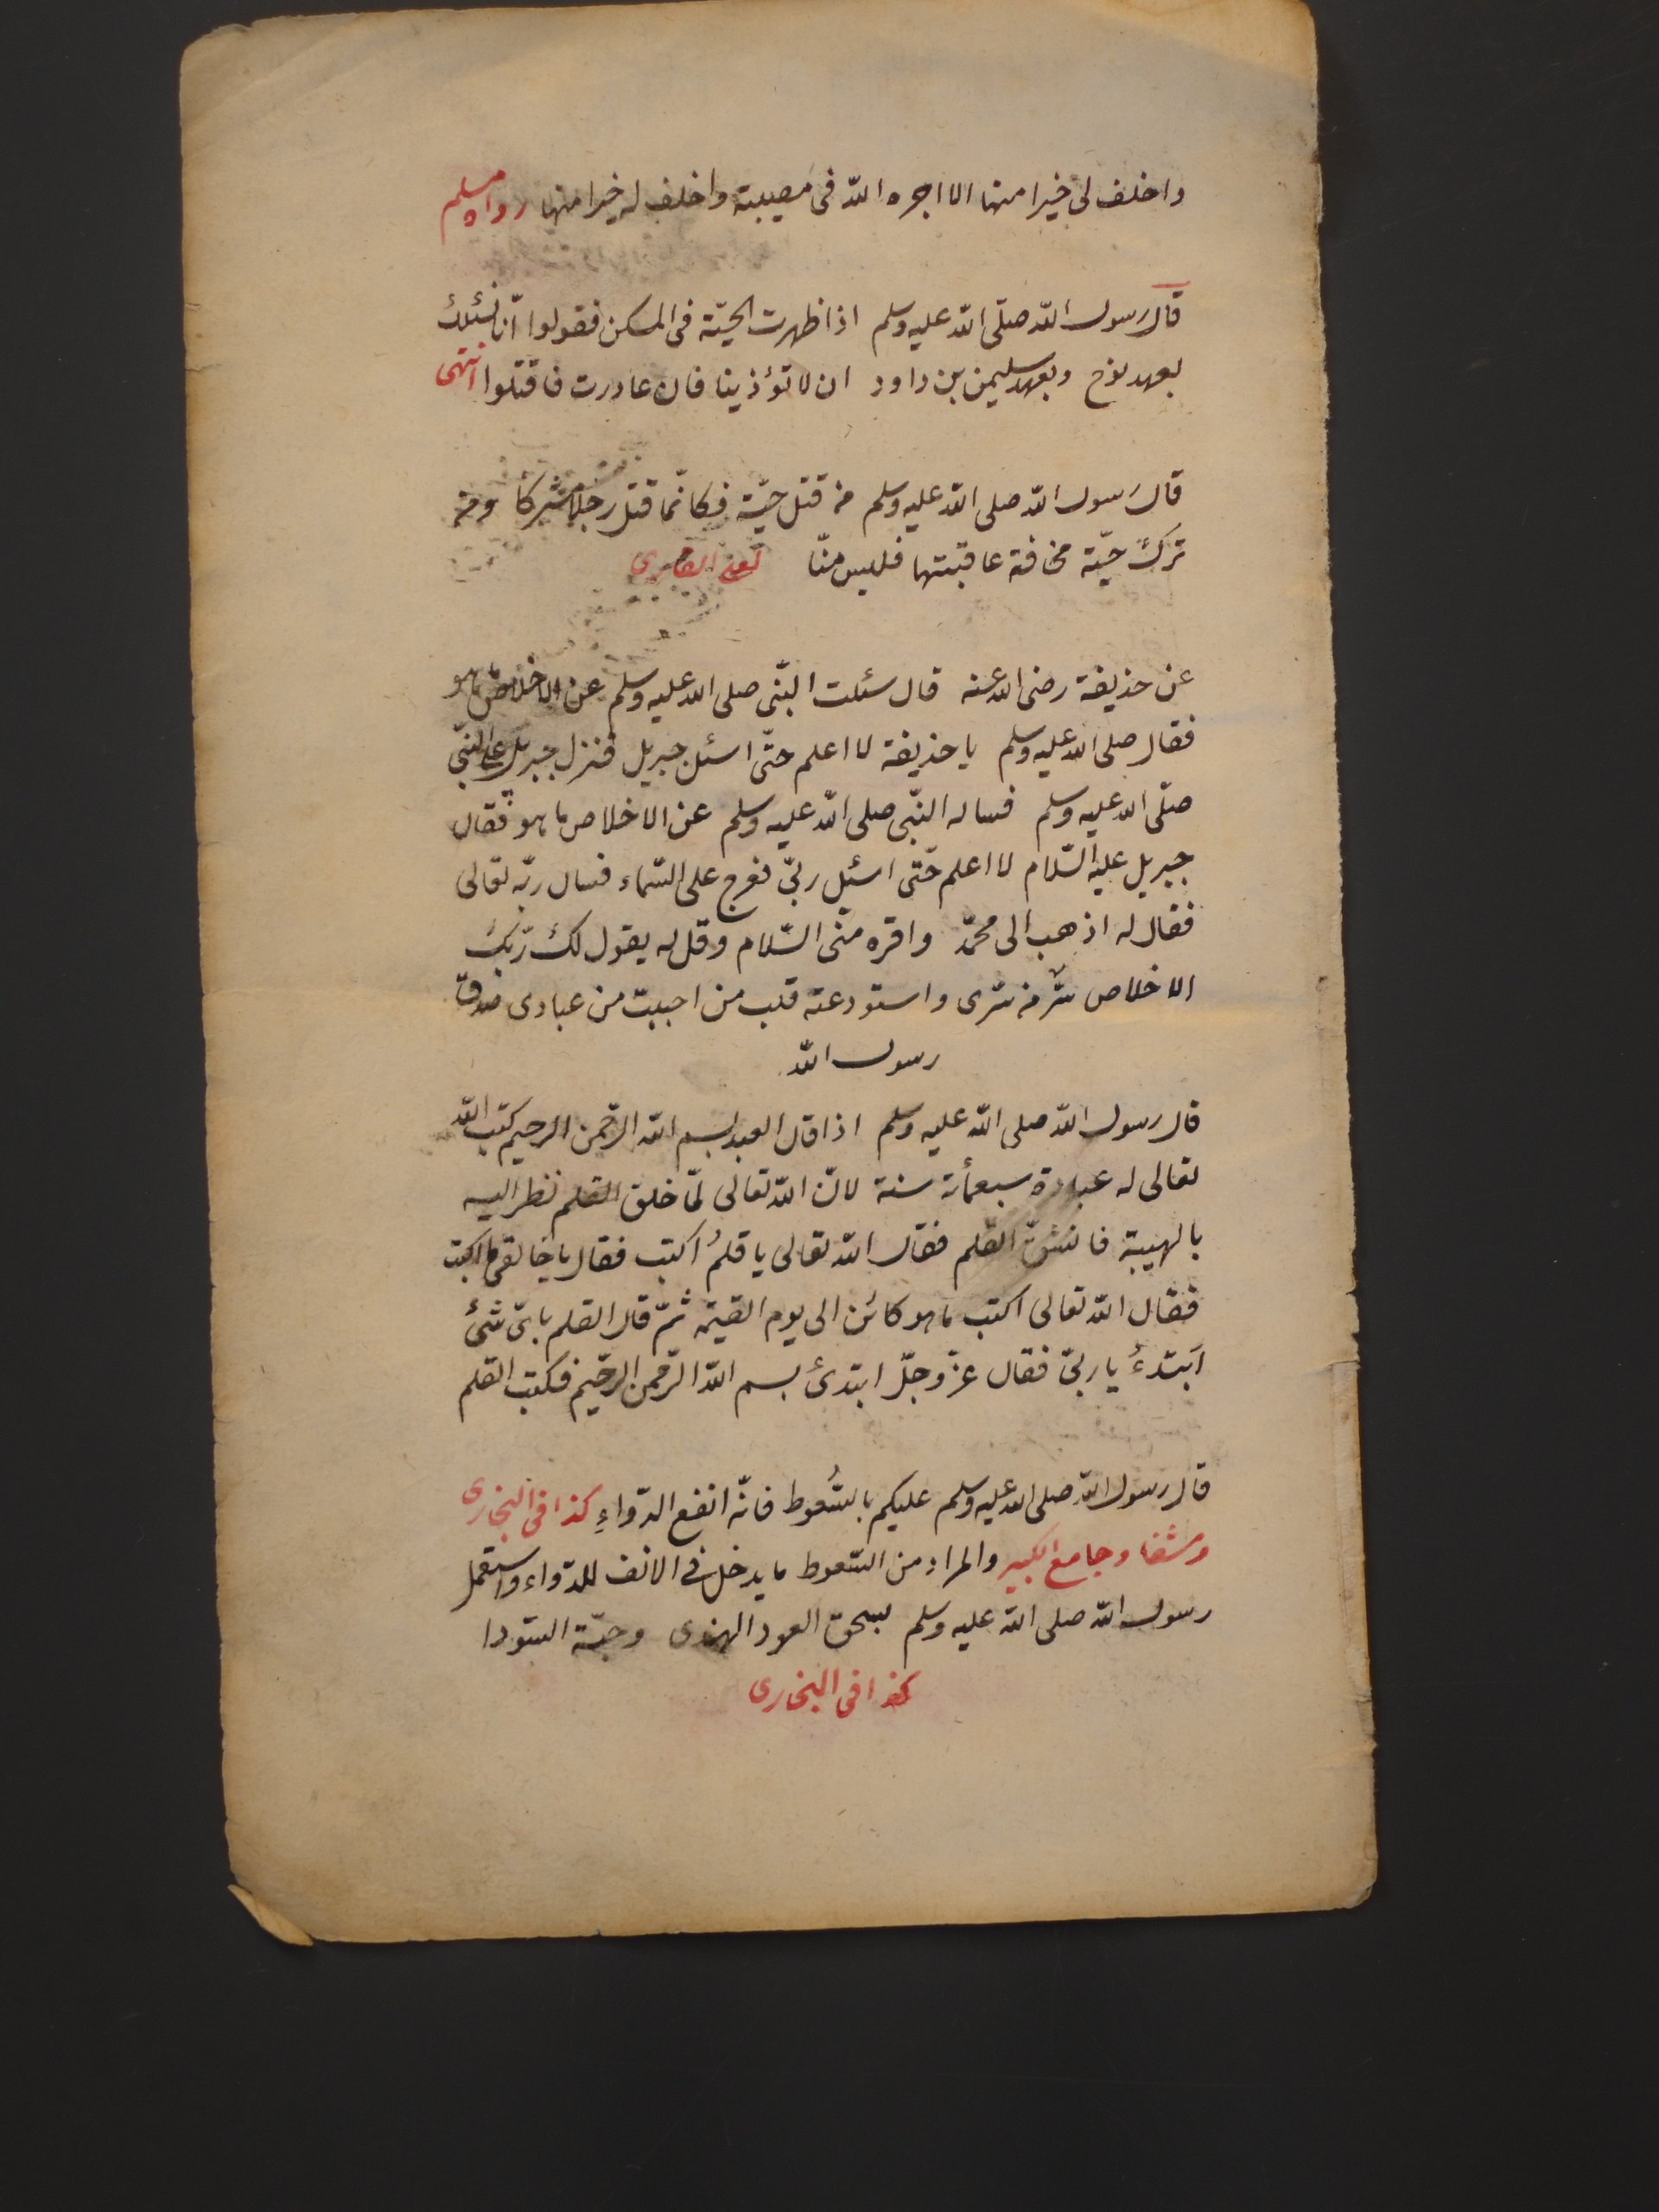 واخلف لى خيرا منها الا اجره الله فى مصيبته واخلف له خيرا منها رواه مسلم
قال رسول الله صلّى الله عليه وسلم اذا ظهرت الحيّة فى المسكن فقولوا انّا نسئلك
بعهد نوح وبعهد سليمن بن داود ان لا تؤذينا فان عادت فاقتلوا انتهى
قال رسول الله صلى الله عليه وسلم من قتل حيّة فكانّما قتل رجلا مشركا ومن
ترك حيّة مخافة عاقبتها فليس منّا
عن حذيفة رضى الله عنه قال سئلت النبّى صلى الله عليه وسلم عن الاخلاص ما هو
فقال صلى الله عليه وسلم يا حذيفة لا اعلم حتّى اسئل جبريل فنزل جبريل على النبّى
صلّى الله عليه وسلم فساله النبّى صلى الله عليه وسلم عن الاخلاص ما هو فقال
جبريل عليه السّلام لا اعلم حتّى اسئل ربّى فعرج على السّماء فسال ربّه تعالى
فقال له اذهب الى محمّد واقره منّى السّلام وقل له يقول لك ربّك
الاخلاص سّر من سّرى واستودعته قلب من احببت من عبادى صدق
رسول الله
قال رسول الله صلى الله عليه وسلم اذا قال العبد بسم الله الرّحمن الرحيم كتب الله
تعالى له عبادة سبعمأئة سنة لانّ الله تعالى لمّا خلق القلم نظر اليه
بالهيبة فانشقّ القلم فقال الله تعالى يا قلمُ اكتب فقال يا خالقى ما اكتب
فقال الله تعالى اكتب ما هو كائن الى يوم القيمة ثمّ قال القلم باىّ شئ
ابتدءُ يا ربّى فقال عزّ وجلّ ابتدئ بسم الله الرّحمن الرّحيم فكتب القلم
قال رسول الله صلى الله عليه وسلم عليكم بالسُّعوط فانّه انفع الدّواءِ كذا فى البخارى
وشفا وجامع الكبير والمراد من السّعوط ما يدخل فى الانف للدّواء واستعمل
رسول الله صلى الله عليه وسلم بسحق العود الهندى وحبّة السّودا
كذا فى البخارى